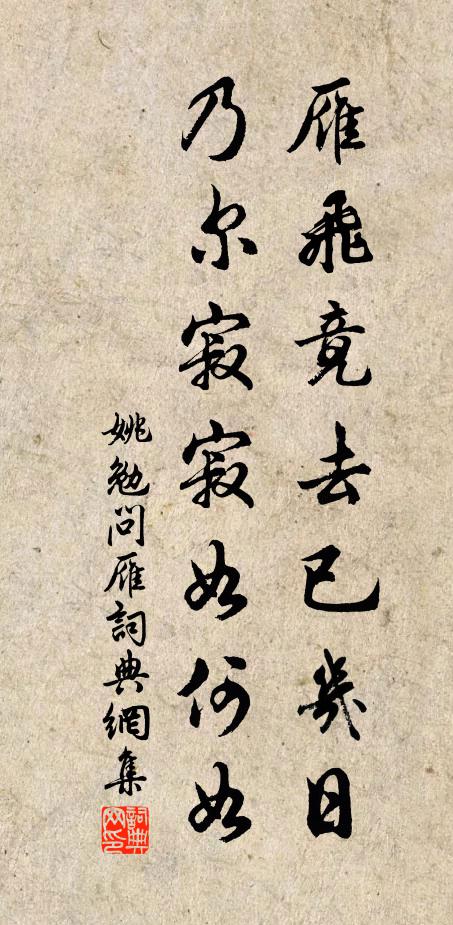 雁飛竟去已幾日
乃尔寂寂如何如
姚勉問雁詞典網集
詞典网印